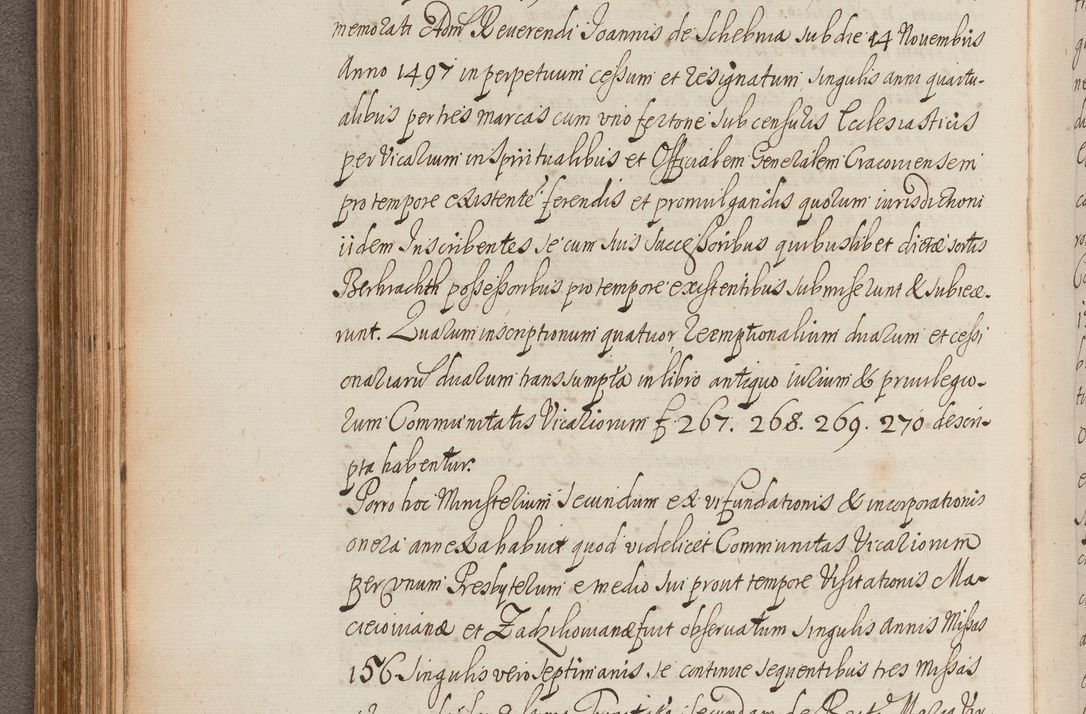 memorati Adm̃ Reuerendi Joannis de Schebnia sub die 14 Nouembris
Anno 1497 in perpetuum cessum et resignatum, singulis anni quartu-
alibus per tres marcas cum uno fertone sub censuris Ecclesiasticis
per Vicarium in Spiritualibus et Officialem Generalem Cracouiensem
pro tempore existentẽ ferendis et promulgandis quorum iurisdictioni
iidem Inscribentes se cum suis Successoribus quibuslibet dictæ sortis
possessoribus pro tempore existentibus submiserunt & subiece-
runt. Quarum inscriptionum quatuor reemptionalium duarum et cessi
onariarũ duarum transsumpta in libro antiquo iurium & priuilegio-
rum Communitatis Vicariorum f 267. 268. 269. 270 descri-
pta habentur.
Porro hoc Ministerium secundum ex vi fundationis & incorporationis
onera annexa habuit quod videlicet Communitas Vicariorum
per vnum Presbyterum e medio sui prout tempore Visitationis Ma-
cieiouianæ et Zadzikouianæ fuit obseruatum singulis annis Missas
156 singulis vero septimanis se continue sequentibus tres Missas
secundam de Beat Maria Vir-